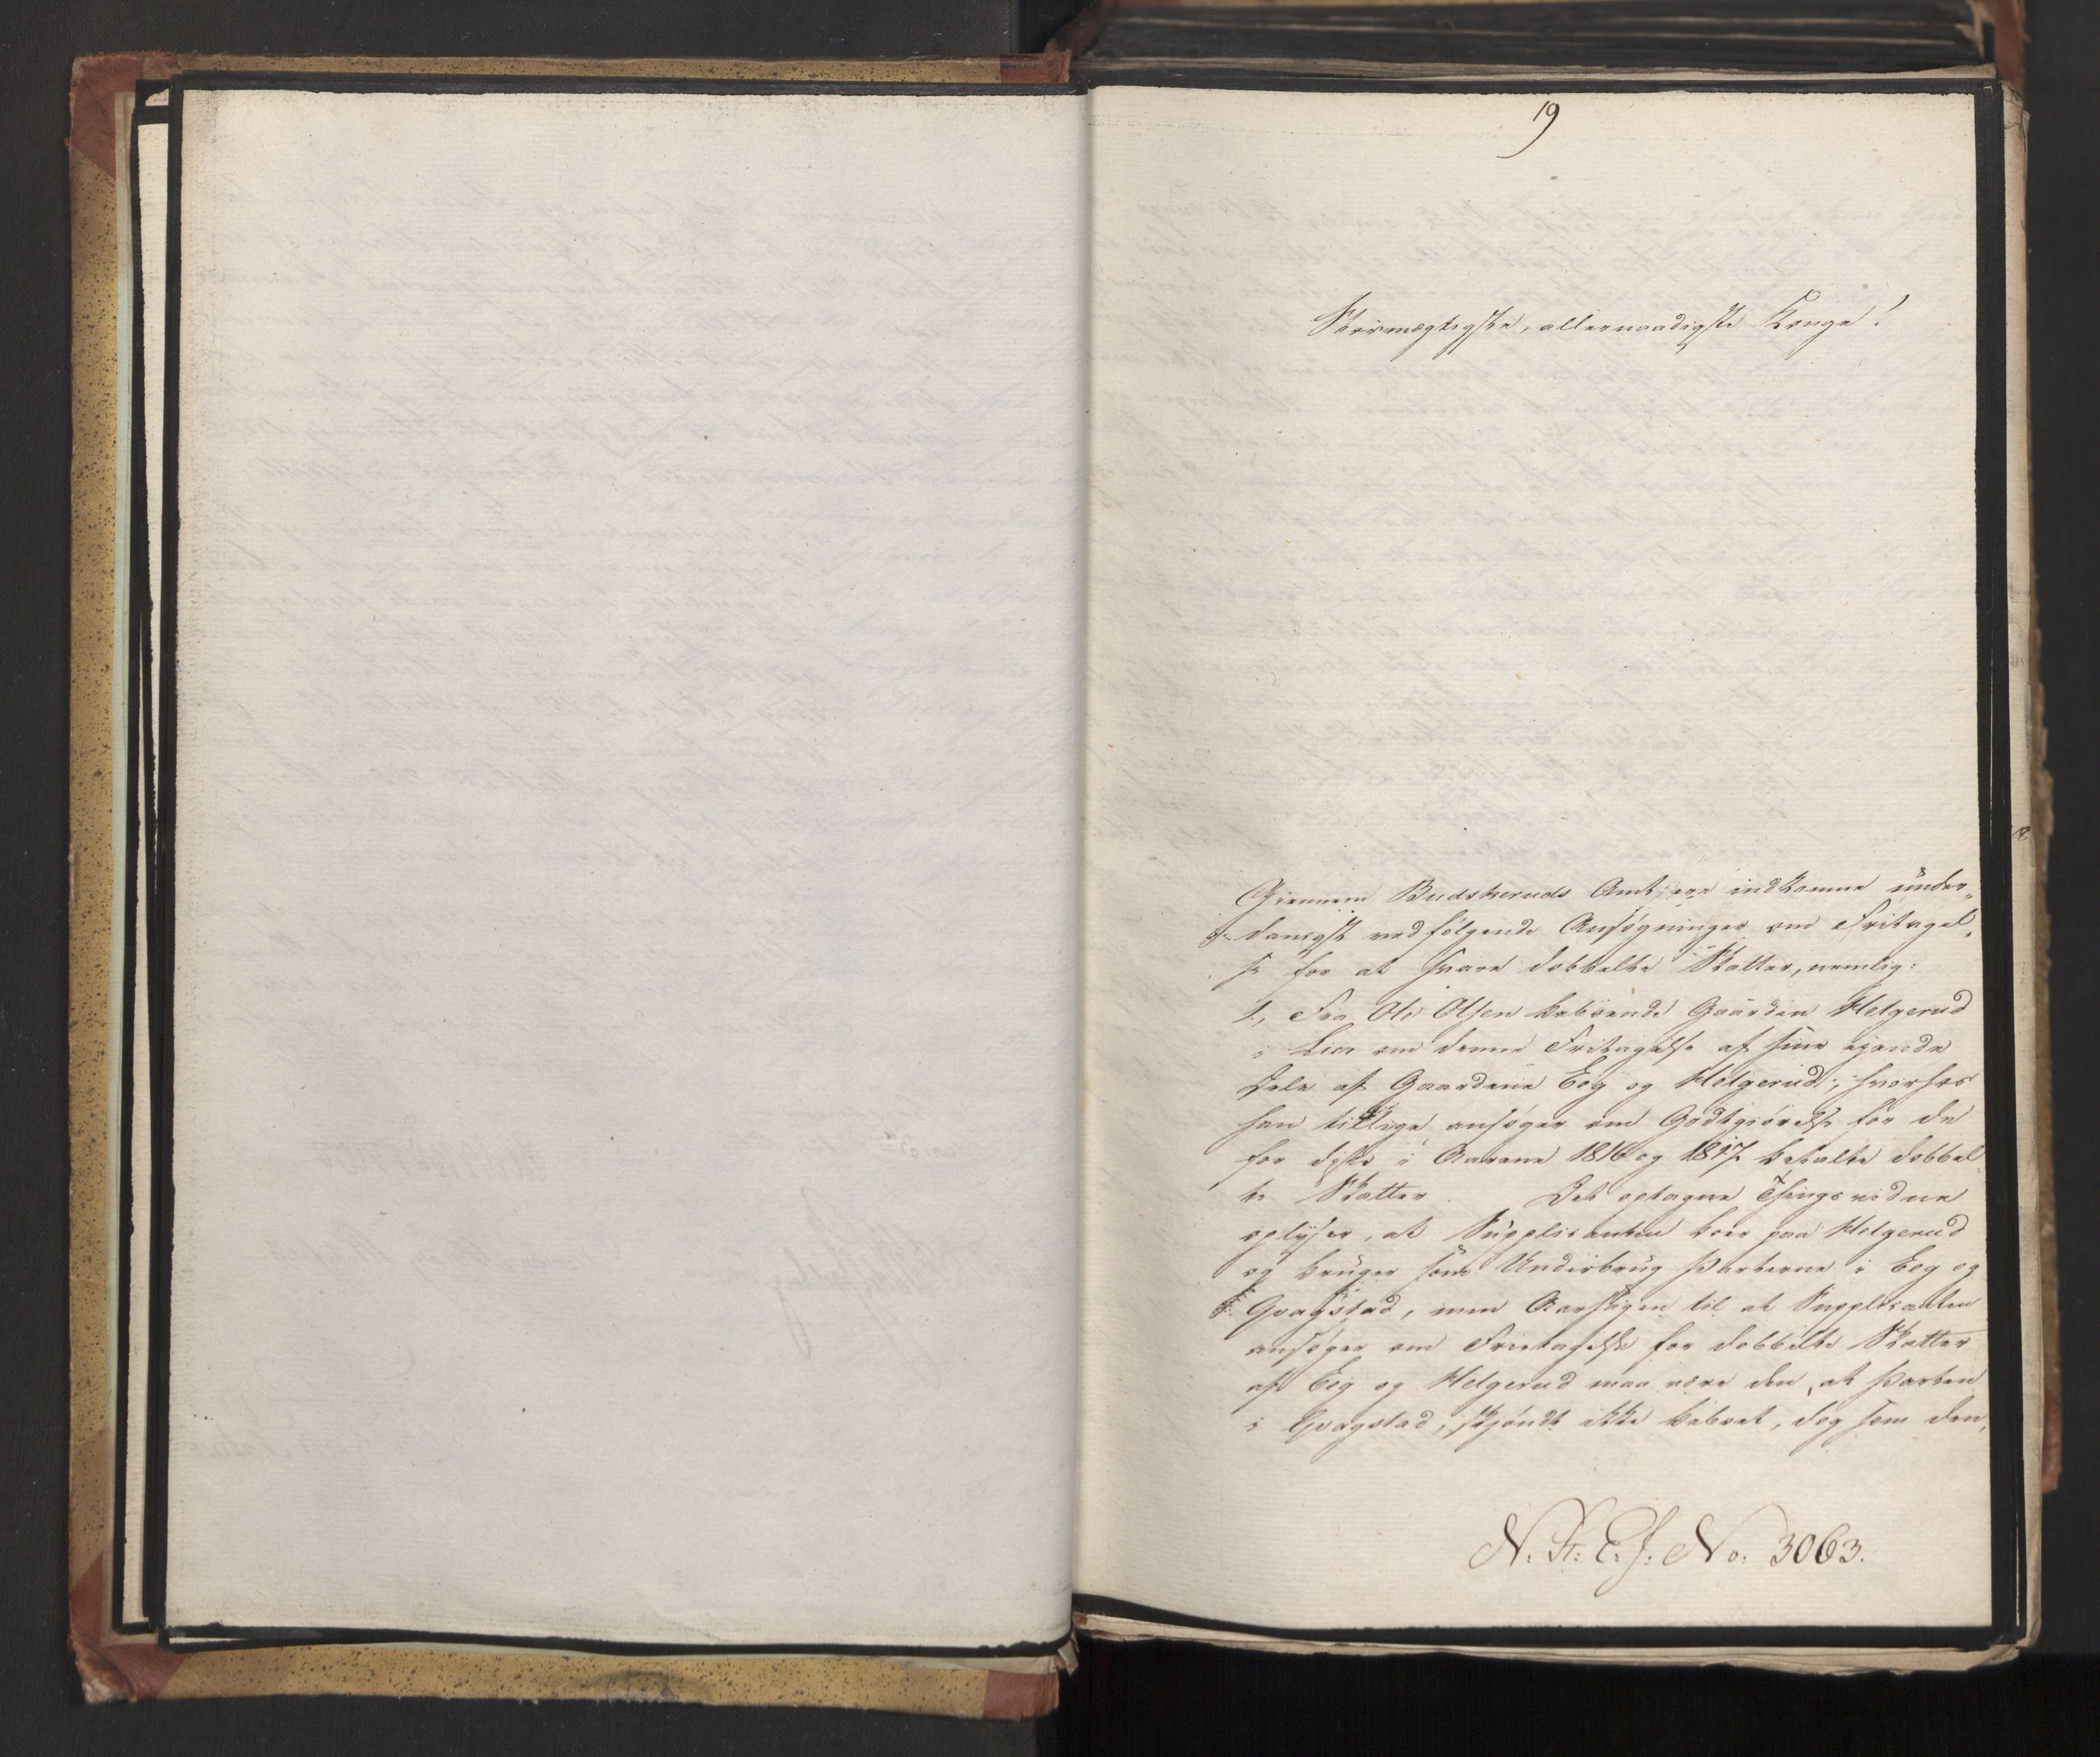 19
Stormægtigste, allernaadigste Konge!
Giennem Budskeruds Amt ere indkomne under-
danigst vedfølgende Ansøgninger om Fritagel-
se for at svare dobbelte Skatter, nemlig:
1., Fra Ole Olsen beboende Gaarden Helgerud
i Lier om denne Fritagelse af sine ejende
Dele af Gaardene Eeg og Helgerud, hvorhos
han tillige ansøger om Godtgiørelse for de
for disse i Aarene 1816 og 1817 betalte dobbel
te Skatter. Det optagne Thingsvidne
oplyser, at Supplicanten boer paa Helgerud
og bruger som Underbrug Parterne i Eeg og
Gvagstad, men Aarsagen til at Supplicanten
ansøger om Frietagelse for dobbelte Skatter
af Eeg og Helgerud maa være den, at Parten
i Gvagstad, skjøndt ikke beboet, dog som den,
N. Fr: C. J: No: 3063.